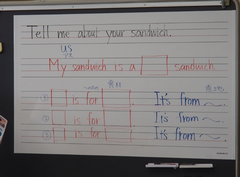 Tell me about your sandwich.
us
My sandwich is a sandwich.
① is for It's from
② is for It's from
③ is for It's from